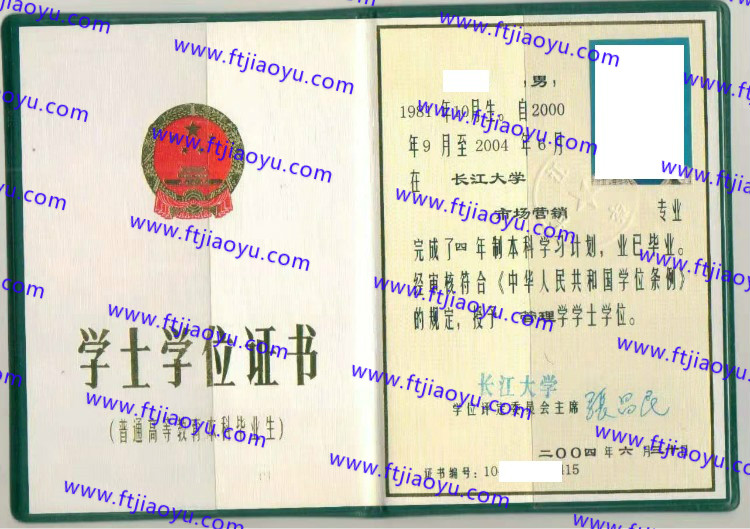 学士学位证书
(普通高等教育本科毕业生)
,男,
1981年10月生。自2000
年9月至2004年6月
在 长江大学
市场营销 专业
完成了四年制本科学习计划,业已毕业。
经审核符合《中华人民共和国学位条例》
的规定,授予 管理学学士学位。
长江大学
学位评定委员会主席 張昌民
二〇〇四年六月三十日
证书编号:10 415
www.ftjiaoyu.com